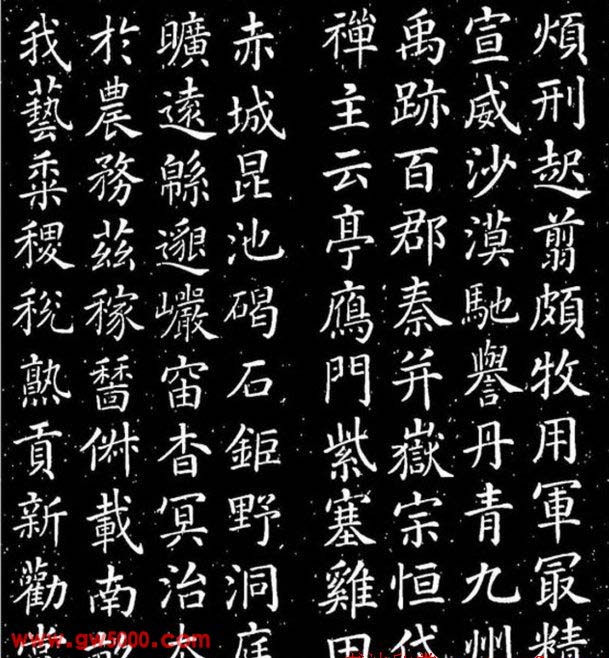 煩刑起翦頗牧用軍冣精
宣威沙漠馳譽丹青九州
禹跡百郡秦并嶽宗恒岱
禪主云亭鴈門紫塞雞田
赤城昆池碣石鉅野洞庭
曠遠緜邈巖岫杳冥治本
於農務茲稼穡俶載南畝
我藝黍稷稅熟貢新勸賞
www.gw5000.com